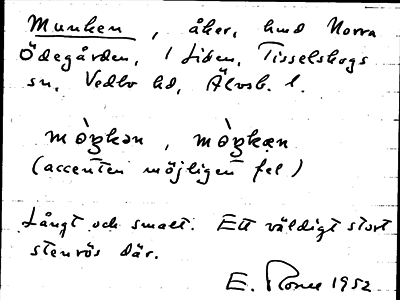 Munken, åker, hmd Norra
Ödegården, 1 Liden, Tisselskogs
sn, Vedbo hd, Älvsb. l.
mòŋkən, mòŋkæn
(accenten möjligen fel)
Långt och smalt. Ett väldigt stort
stenrös där.
E. 1952